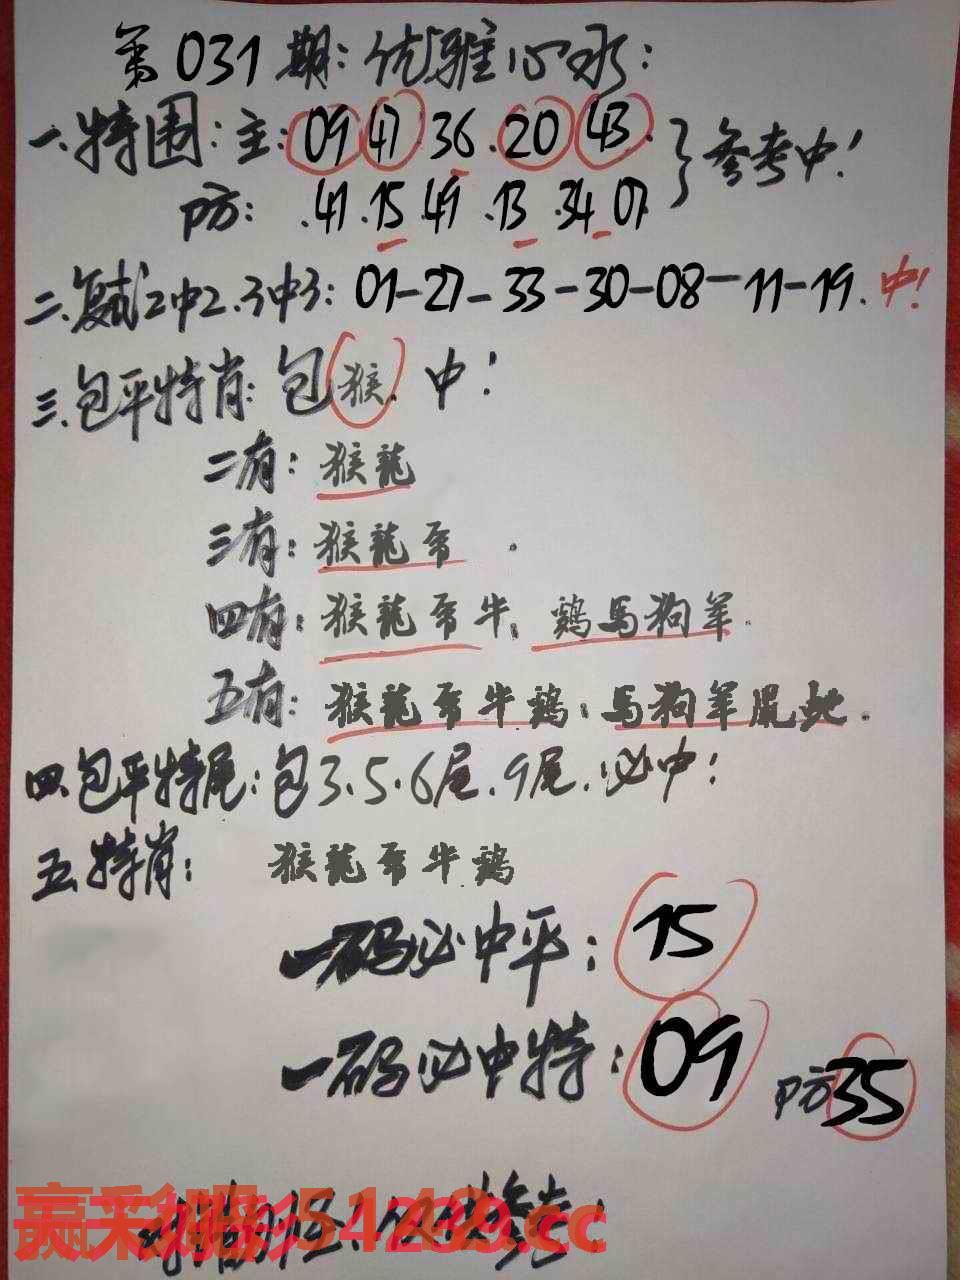 第031期:优雅心水:
一.特围:主:09 47.36.20 43.
防: .41.15.49.13.34 07
}参考中!
二.复试2中2.3中3:01-27-33-30-08-11-19.中!
三.包平特肖:包猴.中!
二有:猴龍
三有:猴龍帝.
四有:猴龍帝牛,鷄馬狗羊.
五有:猴龍帝牛鷄,馬狗羊鼠蛇.
四.包平特尾:包3.5.6尾.9尾.必中!
五.特肖: 猴龍帝牛鷄
一码必中平:15
一码必中特:09 防35